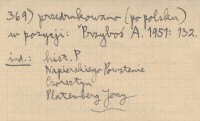 369) przedrukowano (po polsku)
w pozycji: Przyboś A. 1951: 132.
ind.: hist. P
Napierskiego Powstanie
Czorsztyn
Platenberg Jerzy